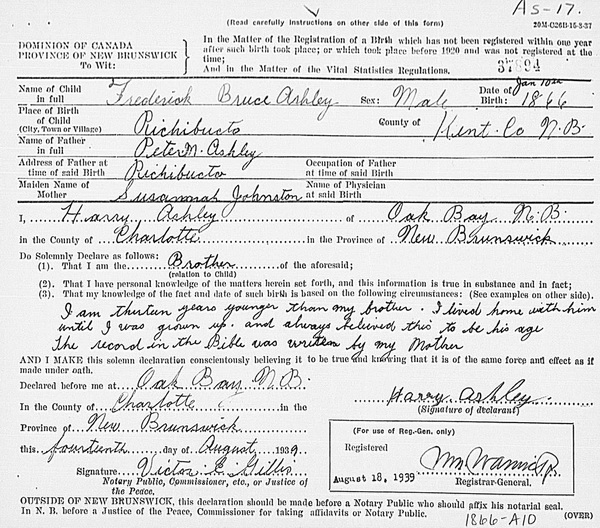 As-17.
(Read carefully instructions on other side of this form)
20M-C26B-15-3-37
DOMINION OF CANADA
PROVINCE OF NEW BRUNSWICK
To Wit:
In the Matter of the Registration of a Birth which has not been registered within one year
after such birth took place; or which took place before 1920 and was not registered at the
time;
And in the Matter of the Vital Statistics Regulations.
37694
Name of Child
in full Frederick Bruce Ashley Sex: Male Date of Birth: Jan 10th 1866
Place of Birth
of Child
(City, Town or Village) Richibucto County of Kent. Co N.B.
Name of Father
in full Peter M. Ashley
Address of Father at
time of said Birth Richibucto Occupation of Father at time of said Birth
Maiden Name of
Mother Susannah Johnston Name of Physician at said Birth
I, Harry Ashley of Oak Bay N.B.
in the County of Charlotte in the Province of New Brunswick
Do Solemnly Declare as follows:
(1). That I am the Brother of the aforesaid;
(relation to Child)
(2). That I have personal knowledge of the matters herein set forth, and this information is true in substance and in fact;
(3). That my knowledge of the fact and date of such birth is based on the following circumstances: (See examples on other side).
I am thirteen years younger than my brother. I lived home with him
until I was grown up. and always believed this to be his age
The record in the Bible was written by my Mother
AND I MAKE this solemn declaration conscientiously believing it to be true and knowing that it is of the same force and effect as if
made under oath.
Declared before me at Oak Bay N.B.
Harry Ashley
(Signature of declarant)
In the County of Charlotte in the
Province of New Brunswick
this fourteenth day of August 1939
Signature Victor E. Gillis
Notary Public, Commissioner, etc., or Justice of
the Peace.
(For use of Reg.-Gen. only)
Registered
August 18, 1939
Registrar-General.
OUTSIDE OF NEW BRUNSWICK, this declaration should be made before a Notary Public who should affix his notarial seal.
In N. B. before a Justice of the Peace, Commissioner for taking affidavits or Notary Public.
1866-A10
(OVER)